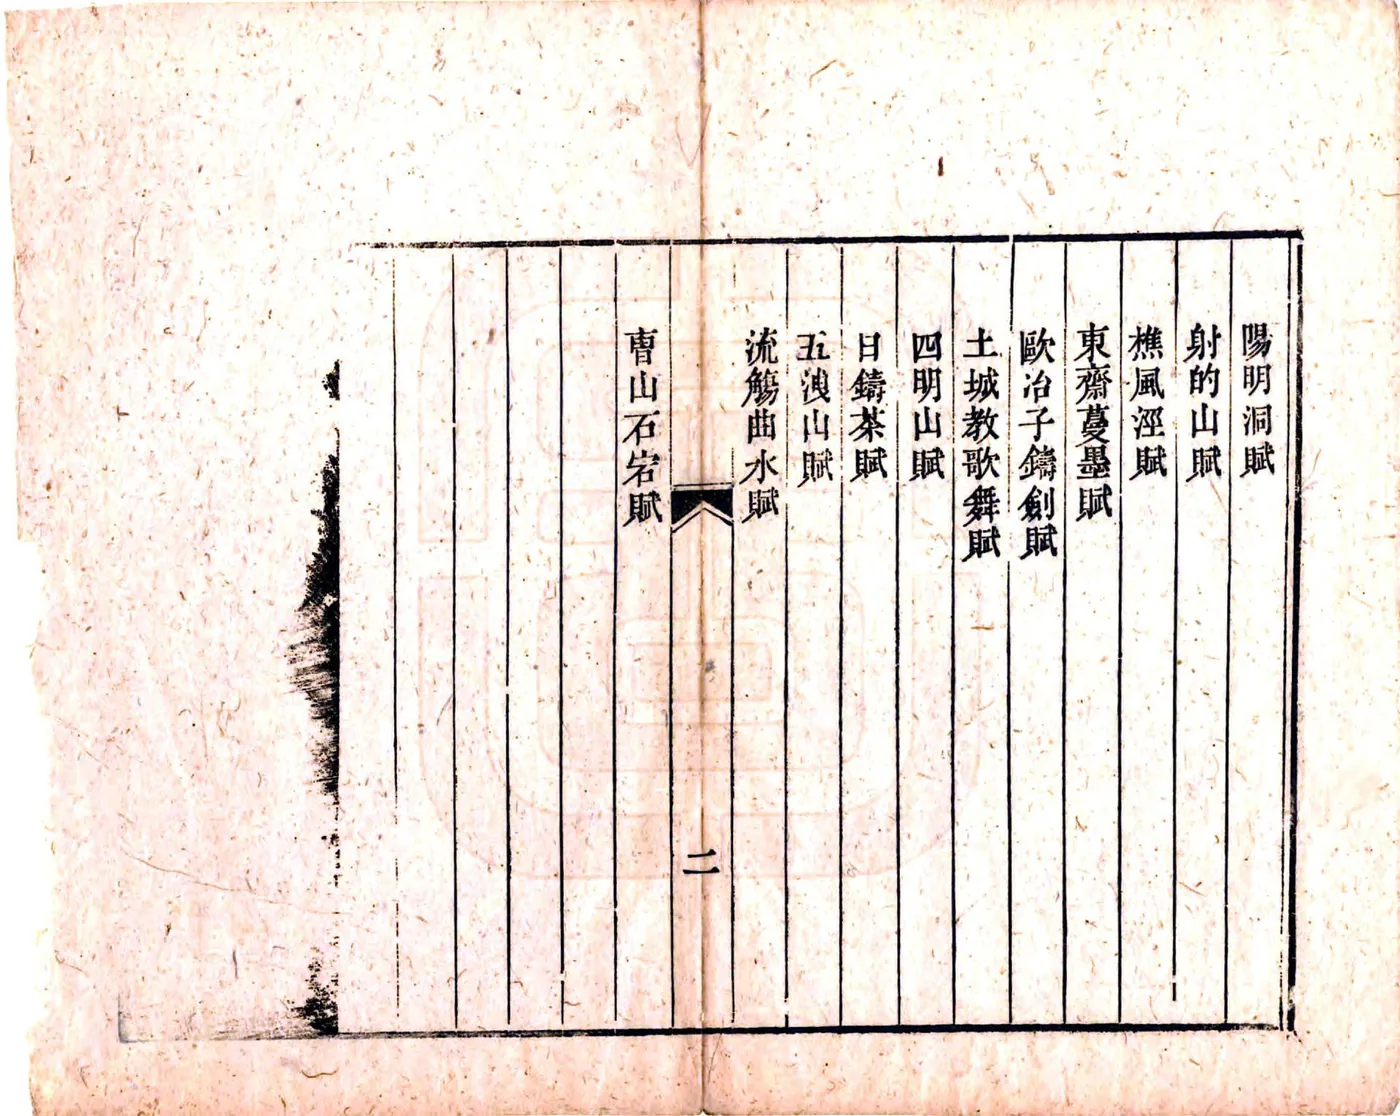 陽明洞賦
射的山賦
樵風涇賦
東齋蔓墨賦
歐冶子鑄劍賦
土城教歌舞賦
四明山賦
日鑄茶賦
五洩山賦
流觴曲水賦
二
曹山石宕賦